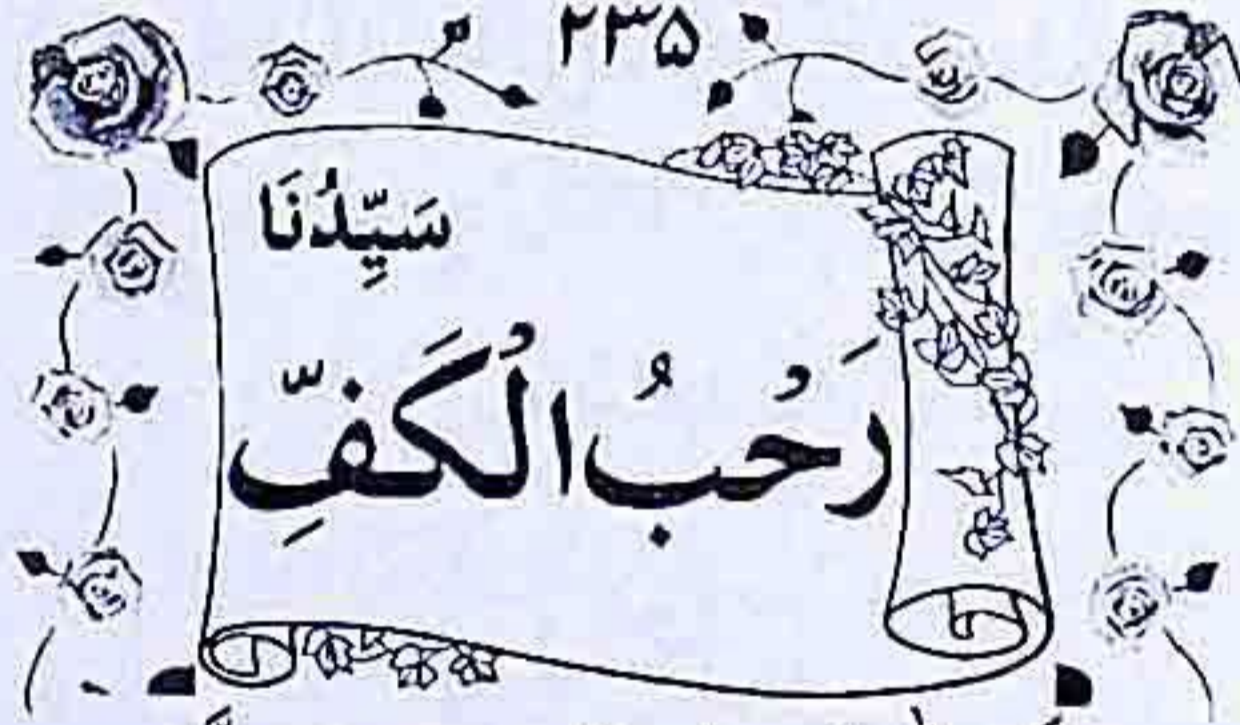 ۲۳۵
سَيِّدُنَا
رَحُبُ الْكَفِّ